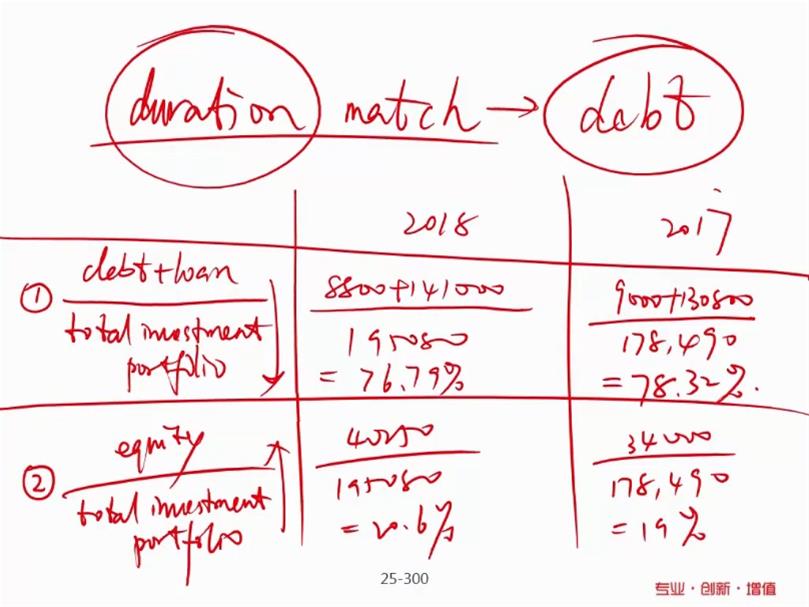 duration match → debt
2018 2017
① debt+loan 8800+141000 9000+130800
total investment 195080 178,490
portfolio = 76.79% = 78.32%.
equity 40250 34000
② total investment 195080 178,490
portfolio = 20.6% = 19%
25-300
专业·创新·增值